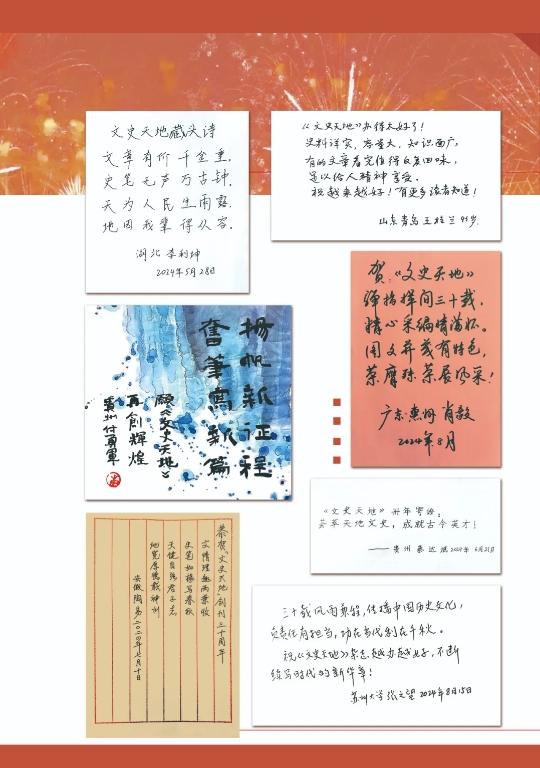 文史天地藏头诗
文章有价千金重，
史笔无声万古钟，
天为人民生雨露，
地因我辈得从容。
湖北 李利坤
2024年5月28日
《文史天地》办得太好了！
史料详实，容量大，知识面广，
有的文章看完值得反复回味，
足以给人精神享受。
祝越来越好！有更多读者知道！
山东青岛 王桂兰
贺：《文史天地》
弹指挥间三十载，
精心采编情满怀。
图文并茂有特色，
荣膺殊荣展风采！
广东惠州 肖毅
2024年8月
扬帆新征程
奋笔写新篇
愿《文史天地》
再创辉煌
贵州 付勇军
《文史天地》卅年寄语：
荟萃天地文史，成就古今英才！
—— 贵州 2024年 6月21日
恭贺《文史天地》创刊三十周年
文情理趣两兼收
史笔如椽写春秋
天健自强君子志
地宽厚德载神州
安徽 陶易 二〇二四年七月十日
三十载风雨兼程，传播中国历史文化，
负责任有担当，功在当代利在千秋。
祝《文史天地》杂志越办越好，不断
续写时代的新华章！
苏州大学 张文望 2024年8月15日